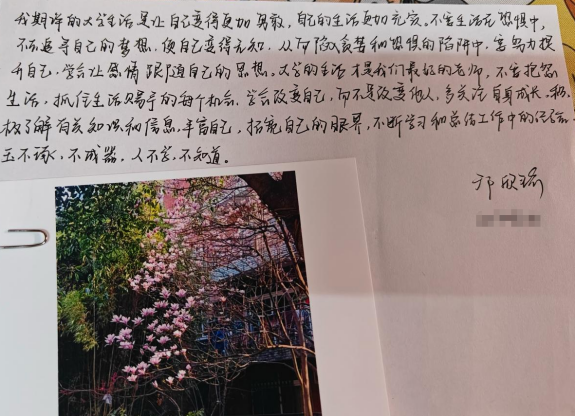 我期许的大学生活是让自己变得更加勇敢,自己的生活更加充实,不会生活在恐惧中,
不会追寻自己的梦想,使自己变得无知,从而陷入贪婪和恐惧的陷阱中,要努力提
升自己,学会让感情跟随自己的思想。大学的生活才是我们最好的老师,不要抱怨
生活,抓住生活赐予的每个机会,学会改变自己,而不是改变他人,多关注自身成长,积
极了解有关知识和信息,丰富自己,拓宽自己的眼界,不断学习和总结工作中的经验。
玉不琢,不成器,人不学,不知道。
欣瑜